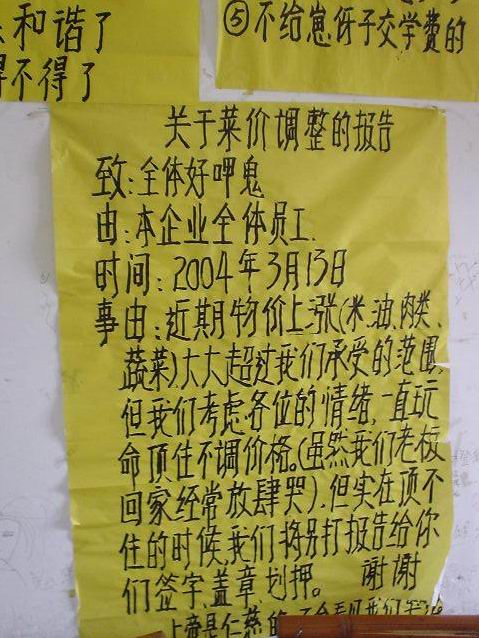 和谐了
不得了
⑤不给崽伢子交学费的
关于菜价调整的报告
致:全体好呷鬼
由:本企业全体员工.
时间:2004年3月13日
事由:近期物价上涨(米、油、肉类、
蔬菜),大大超过我们承受的范围,
但我们考虑各位的情绪,一直玩
命顶住不调价格。(虽然我们老板
回家经常放肆哭).但实在顶不
住的时候,我们将另打报告给你
们签字、盖章、划押。 谢谢
上帝是仁慈的